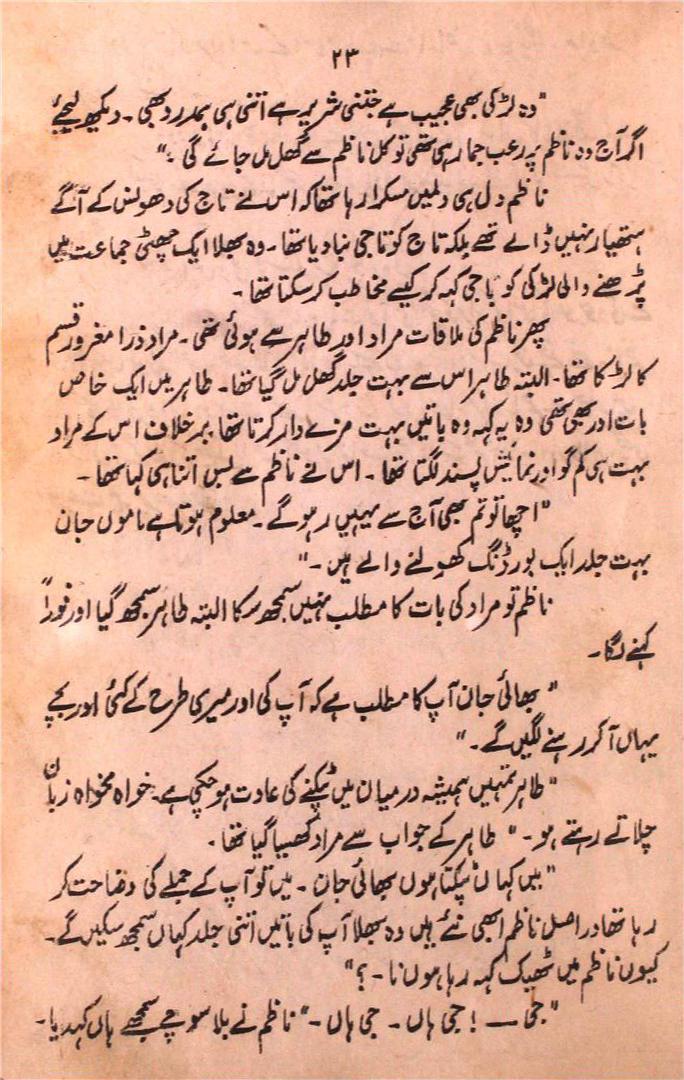 ۲۳
"وہ لڑکی بھی عجیب ہے جتنی شریر ہے اتنی ہی ہمدرد بھی۔ دیکھ لیجیے
اگر آج وہ ناظم پر رعب جما رہی تھی تو کل ناظم سے گھل مل جائے گی۔"
ناظم دل ہی دل میں مسکرا رہا تھا کہ اس نے تاج کی دھونس کے آگے
ہتھیار نہیں ڈالے تھے بلکہ تاج کو تاجی بنا دیا تھا۔ وہ بھلا ایک چھٹی جماعت میں
پڑھنے والی لڑکی کو باجی کہہ کر کیسے مخاطب کر سکتا تھا۔
پھر ناظم کی ملاقات مراد اور طاہر سے ہوئی تھی۔ مراد ذرا مغرور قسم
کا لڑکا تھا۔ البتہ طاہر اس سے بہت جلد گھل مل گیا تھا۔ طاہر میں ایک خاص
بات اور بھی تھی وہ یہ کہ وہ باتیں بہت مزے دار کرتا تھا، برخلاف اس کے مراد
بہت ہی کم گو اور نمائش پسند لگتا تھا۔ اس نے ناظم سے بس اتنا ہی کہا تھا۔
"اچھا تو تم بھی آج سے یہیں رہو گے۔ معلوم ہوتا ہے ماموں جان
بہت جلد ایک بورڈنگ کھولنے والے ہیں۔"
ناظم تو مراد کی بات کا مطلب نہیں سمجھ سکا البتہ طاہر سمجھ گیا اور فوراً
کہنے لگا۔
"بھائی جان آپ کا مطلب ہے کہ آپ کی اور میری طرح کے کئی اور بچے
یہاں آ کر رہنے لگیں گے۔"
"طاہر تمہیں ہمیشہ درمیان میں ٹپکنے کی عادت ہو چکی ہے۔ خواہ مخواہ زبان
چلاتے رہتے ہو۔" طاہر کے جواب سے مراد کھسیا گیا تھا۔
"میں کہاں ٹپکتا ہوں بھائی جان۔ میں تو آپ کے جملے کی وضاحت کر
رہا تھا دراصل ناظم ابھی نئے ہیں وہ بھلا آپ کی باتیں اتنی جلد کہاں سمجھ سکیں گے۔
کیوں ناظم میں ٹھیک کہہ رہا ہوں نا۔؟"
"جی — ! جی ہاں۔ جی ہاں۔" ناظم نے بلا سوچے سمجھے ہاں کہدیا۔